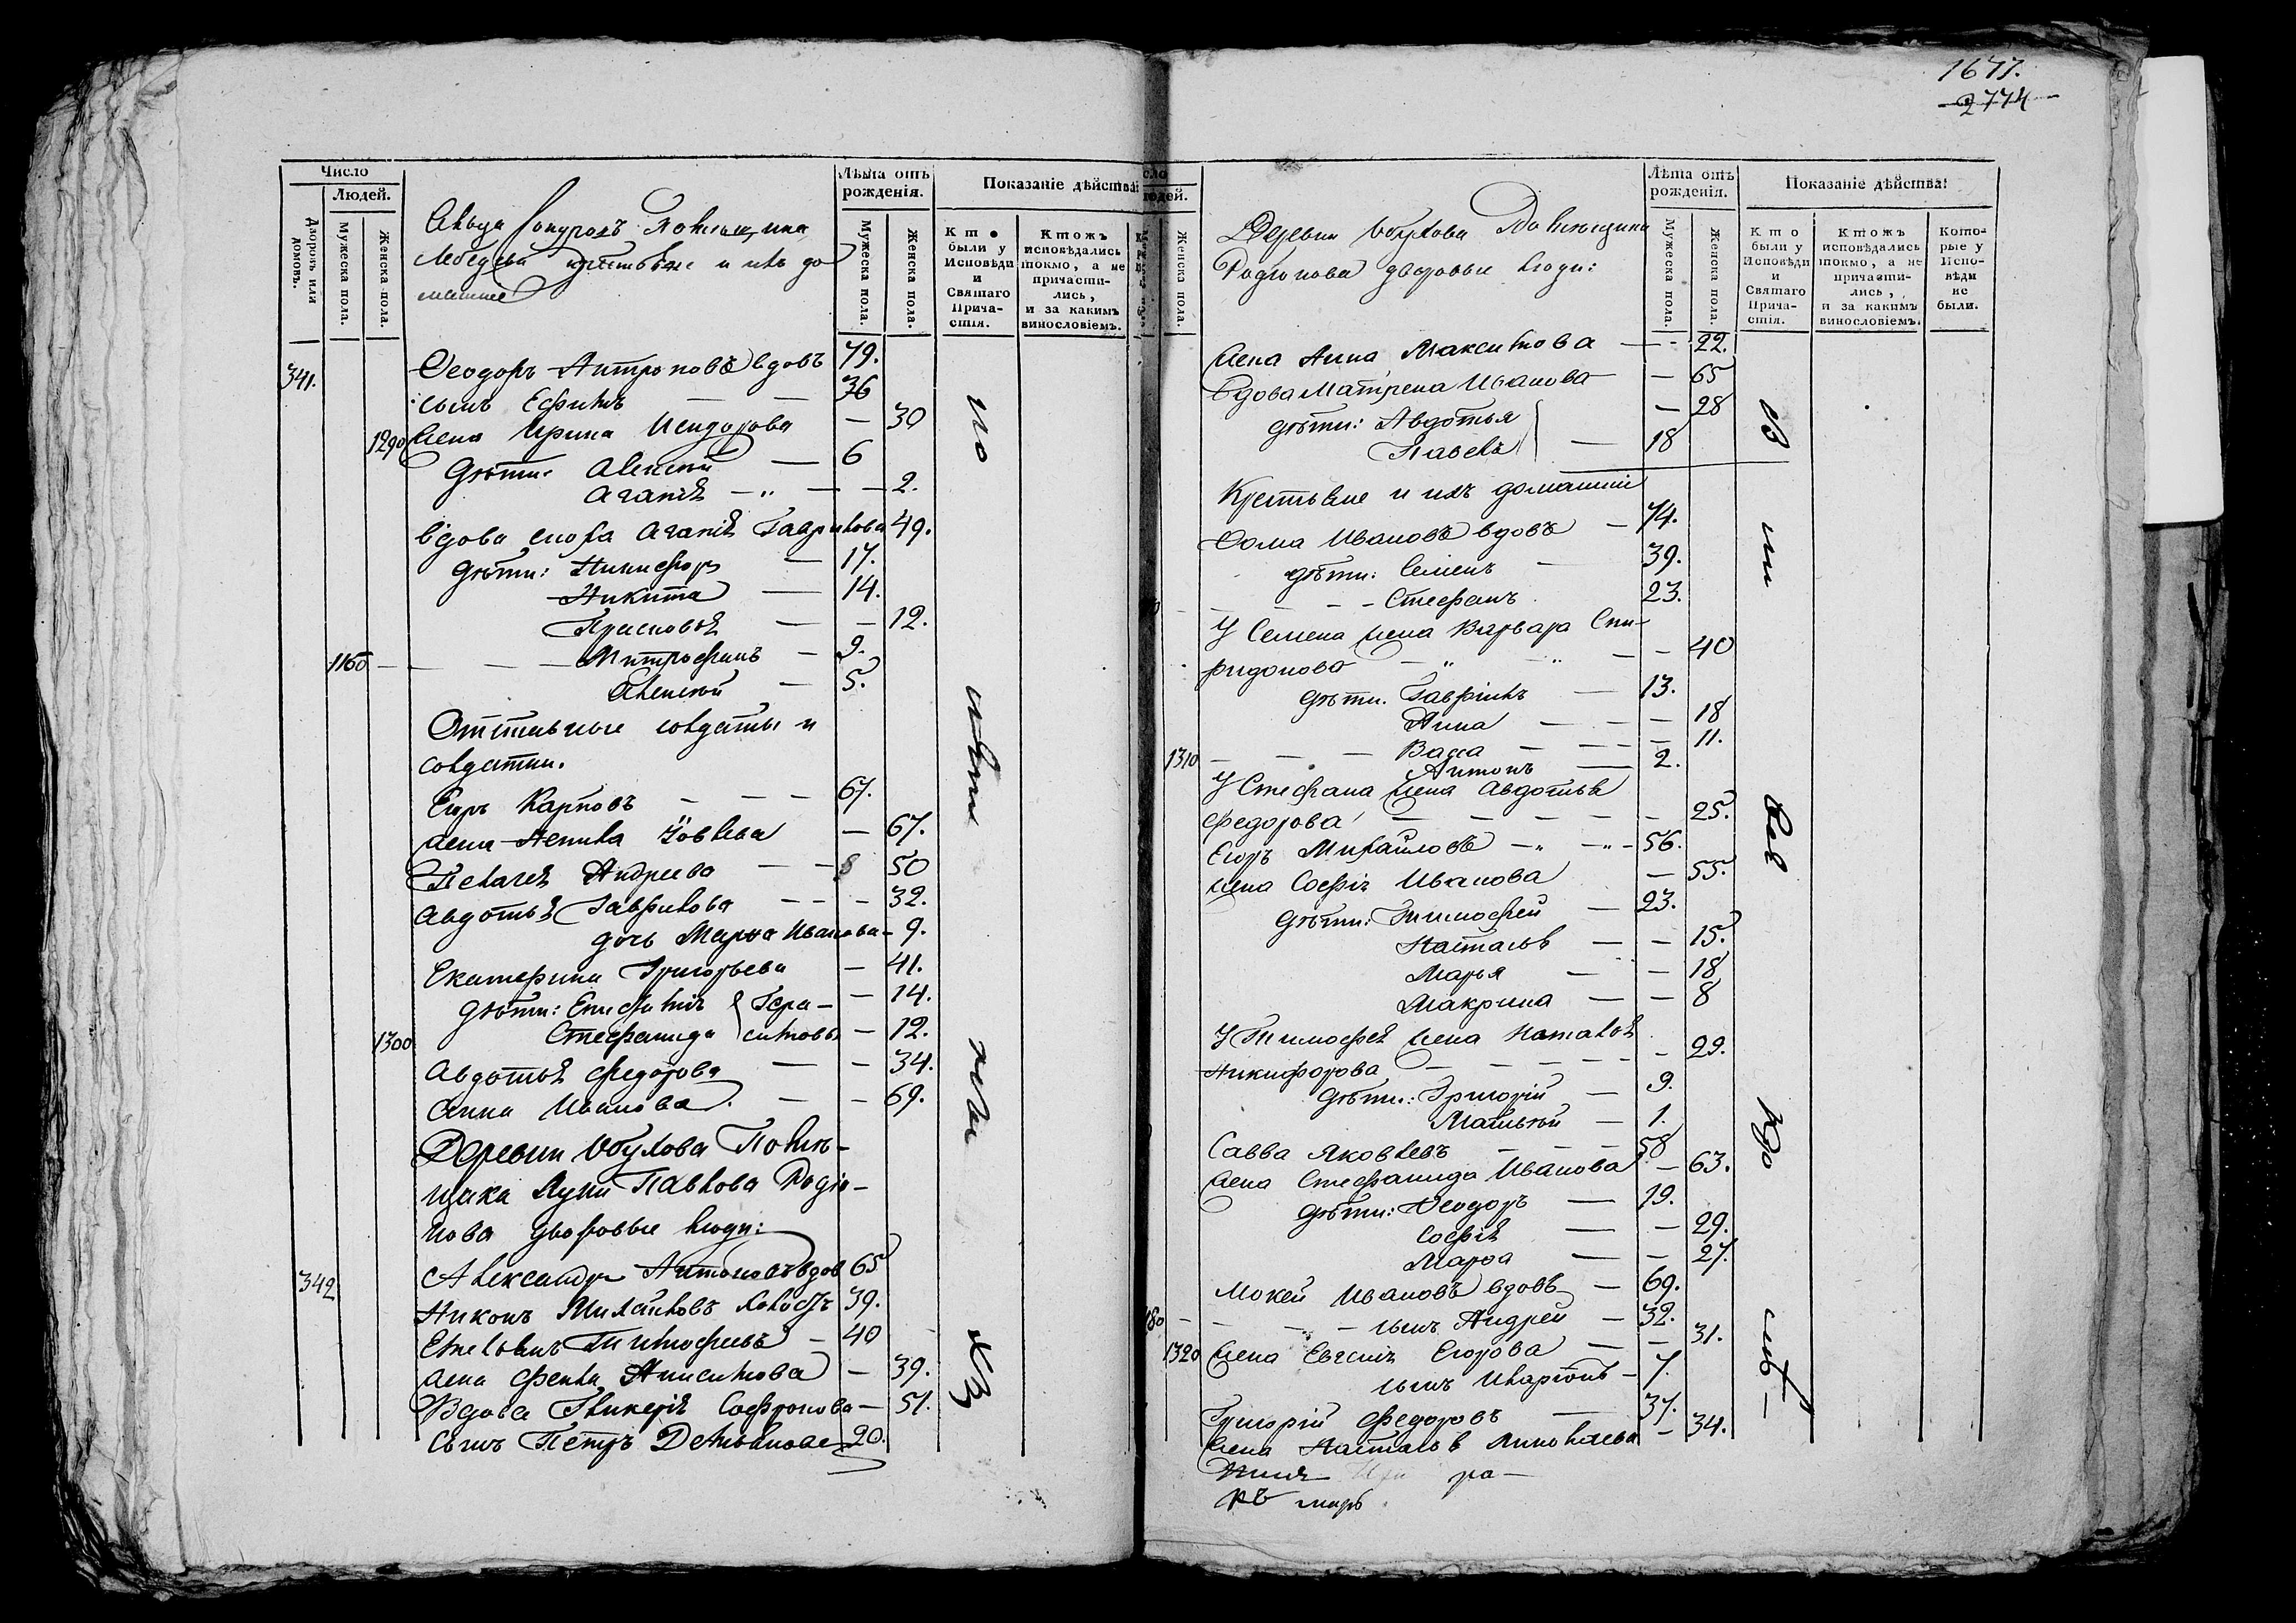 1677.
2774
Число
Людей.
Дворовъ или домовъ.
Мужеска пола.
Женска пола.
Лѣта отъ рожденія.
Мужеска пола.
Женска пола.
Показаніе дѣйства:
Кто были у Исповѣди и Святаго Причастія.
Ктожъ исповѣдались токмо, а не причастились, и за какимъ винословіемъ.
крестьяне и ихъ до
машние
341. Ѳеодоръ Антроповъ вдовъ 79.
сынъ Ефимъ — — 36
1290 жена Ирина Исидорова — 30
дѣти: Алексей — 6
Агапія — — — 2.
вдова сноха Агапія Гаврилова 49.
дѣти: Никифоръ — 17.
Никита — 14.
Прасковья — — 12.
1160 — — — Митрофанъ — 9.
Алексей — 5.
Отставные солдаты и
солдатки.
Егоръ Карповъ — — — 67.
жена — 67.
Пелагея Андреева — — 50
Авдотья Гаврилова — — — 32.
дочь Марѳа Иванова — 9.
Екатерина Григорьева — 41.
дѣти: Гера- — 14.
1300 Стефанида симовы — 12.
Авдотья Федорова — — 34.
Анна Иванова. — — 69.
Деревни Обухова Помѣ-
щика Луки Павлова Родіо-
нова дворовые люди:
342 Александръ Антоновъ вдов 65
Никонъ Михайловъ холостъ 39.
Емельянъ Тимофеевъ — 40
жена Фекла Анисимова — 39.
Вдова Гликерія Софронова — 51.
сынъ Петръ Демьяновъ 20.
Женска пола.
Лѣта отъ рожденія.
Мужеска пола.
Женска пола.
Показаніе дѣйства:
Кто были у Исповѣди и Святаго Причастія.
Ктожъ исповѣдались токмо, а не причастились, и за какимъ винословіемъ.
Которые у Исповѣди не были.
Деревни Обухова Помѣщика
Родіонова дворовые люди:
жена Анна Максимова — — 22.
Вдова Матрена Иванова — — 65
дѣти: Авдотья — 28
Павелъ — 18
Крестьяне и ихъ домашніи
Ѳома Ивановъ вдовъ — 74.
дѣти: Семенъ — 39.
— — — Стефанъ 23.
У Семена жена Варвара Спи-
ридонова — — — — 40
дѣти. Гавріилъ — 13.
Анна — — — 18
1310 — — — Васса — — — 11.
Антонъ — 2.
У Стефана жена Авдотья
Федорова — — — — — 25.
Егоръ Михайловъ — — 56.
жена Софія Иванова — 55.
дѣти: Тимофей — 23.
Наталья — — 15.
Марья — — 18
Макрина — — 8
У Тимофея жена Наталья
Никифорова — — — — 29.
дѣти: Григорій — 9.
Матвей — 1.
Савва Яковлевъ — — 58
жена Стефанида Иванова — 63.
дѣти: Ѳеодоръ — 19.
Софія — — 29.
Марѳа — — 27.
Мокей Ивановъ вдовъ — 69.
— — — сынъ Андрей — 32.
1320 жена Евгенія Егорова — — 31.
сынъ — 7.
Григорій Федоровъ — 37.
жена Наталья — 34.